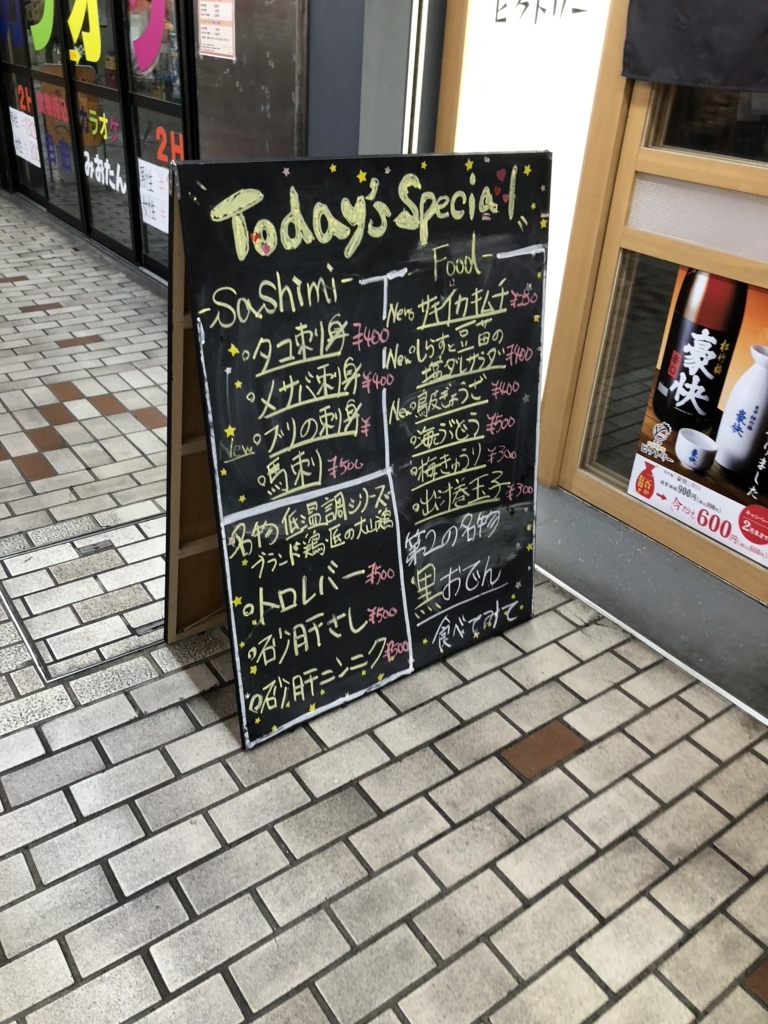 Today's Special
-Sashimi-
タコ刺身 ¥400
メサバ刺身 ¥400
New ブリの刺身 ¥
馬刺 ¥500
名物 低温調シリーズ
ブランド鶏 匠の大山鶏
トロレバー ¥500
砂肝さし ¥500
砂肝ニンニク ¥500
-Food-
New サキイカキムチ ¥250
New しらすと豆苗の
塩ダレサラダ ¥400
New 鳥皮ぎょうざ ¥400
海ぶどう ¥500
梅きゅうり ¥300
だし巻玉子 ¥300
第2の名物
黒おでん
食べてみて
ビクトリー
カラオケ
みおたん
2H
2H
豪快
松竹梅
辛口
豪快
豪快
900円
今なら
600円